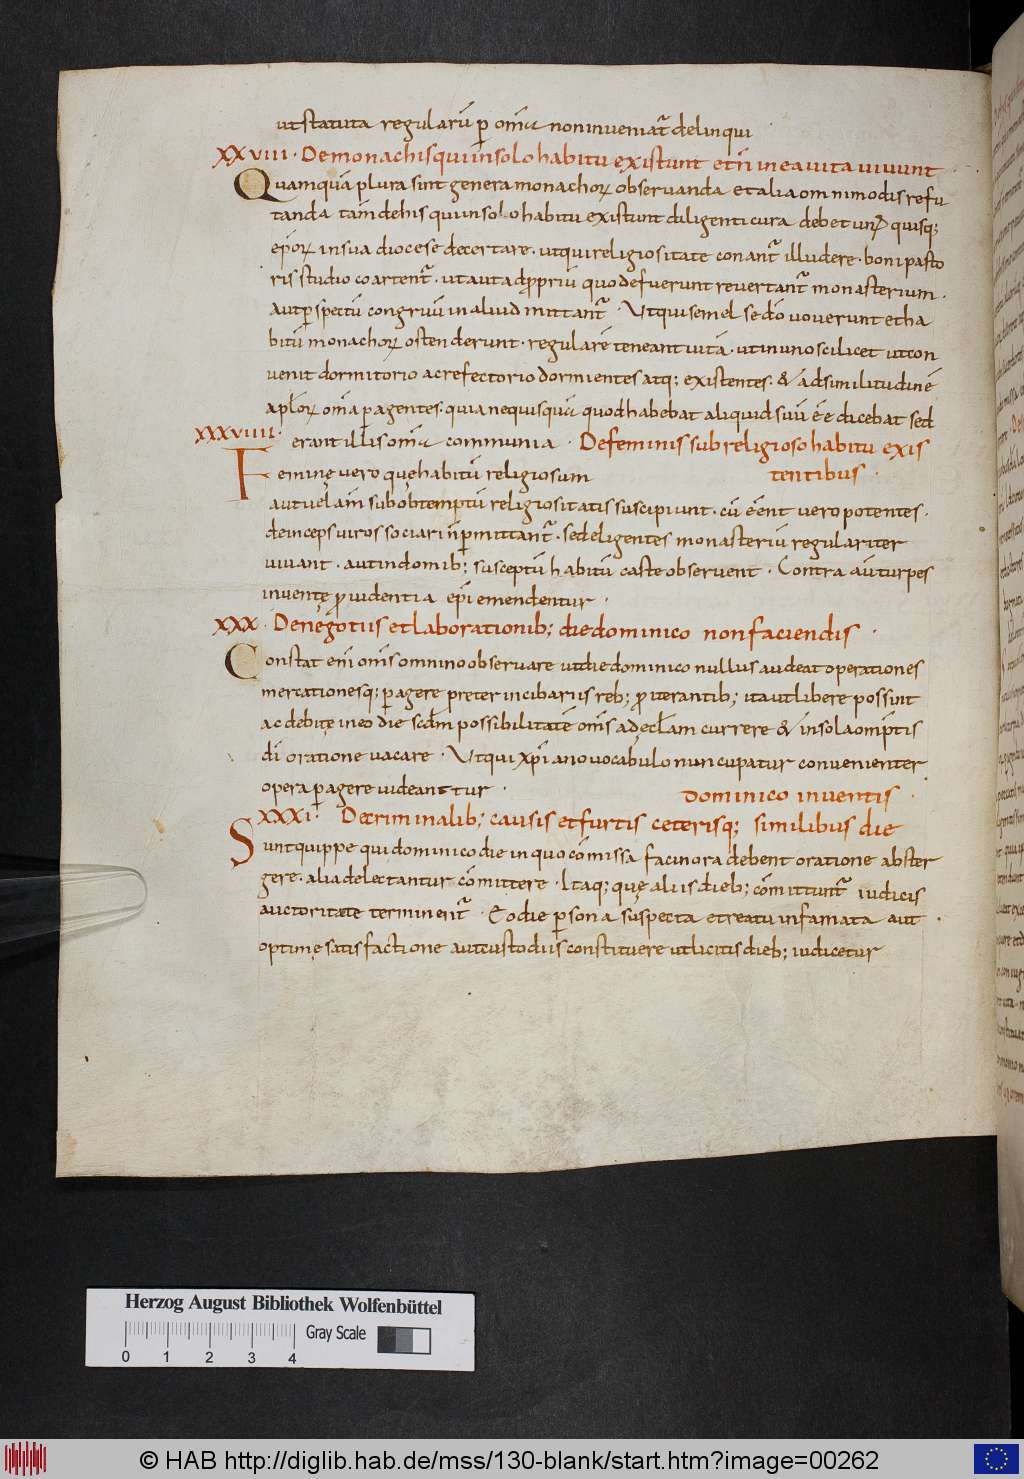 ut statuta regulariū ꝑ om̄ia non inueniat̄ delinqui
XXVIII · De monachis qui in solo habitu existunt et n̄ in ea uita uiuunt
Quamquā plura sint genera monachorꝝ obseruanda et alia omnimodis refu
tanda tam̄ de his qui in solo habitu existunt diligenti cura debet un̄ quisq;
ep̄orꝝ in sua diocese decertare · ut qui religiositate conant̄ illudere · boni pasto
ris studio coartent̄ · ut aut ad ꝓpriū quod fuerunt reuertant̄ monasterium ·
aut ꝑspectū congruū in aliud mittant̄ · Ut qui semel se dō uouerunt et ha
bitū monachorꝝ ostenderunt · regularē teneant uitā · ut in uno scilicet ut con
uenit dormitorio ac refectorio dormientes atq; existentes · & ad similitudinē
apl̄orꝝ om̄ia ꝑagentes · quia nequisquā quod habebat aliquid suū ēē dicebat sed
XXXVIIII · erant illis om̄ia communia · De feminis sub religioso habitu exis
Feminę uero quę habitū religiosum tentibus ·
aut uelam̄ sub obtemptū religiositatis suscipiunt · cū ēent uero potentes ·
deinceps uiros sociari n̄ ꝑmittant̄ · sed eligentes monasteriū regulariter
uiuant · aut in domib; susceptū habitū caste obseruent · Contra aūt turpes
inuentę ꝓuidentia ep̄i emendentur ·
XXX · De negotiis et laborationib; die dominico non faciendis ·
Constat eni om̄is omnino obseruare ut die dominico nullus audeat operationes
mercationesq; ꝑagere preter in cibariis reb; ꝓ iterantib; ita ut libere possint
ac debite in eo die scdm possibilitatē om̄is ad ęcl̄am currere & in sola om̄iptis
dī oratione uacare · Ut qui xp̄iano uocabulo nuncupatur conuenienter
opera ꝑagere uideantur · dominico inuentis ·
XXXI · De criminalib; causis et furtis ceterisq; similibus die
Sunt quippe qui dominico die in quo cōmissa facinora debent oratione abster
gere · alia delectantur cōmittere · Itaq; quę aliis dieb; cōmittunt̄ iudicis
auctoritate terminent̄ · Eo die ꝑsona suspecta et reatu infamata aut ·
optime satisfactione aut custodiis constituere ut licitis dieb; iudicetur
Herzog August Bibliothek Wolfenbüttel
Gray Scale
0 1 2 3 4
© HAB http://diglib.hab.de/mss/130-blank/start.htm?image=00262